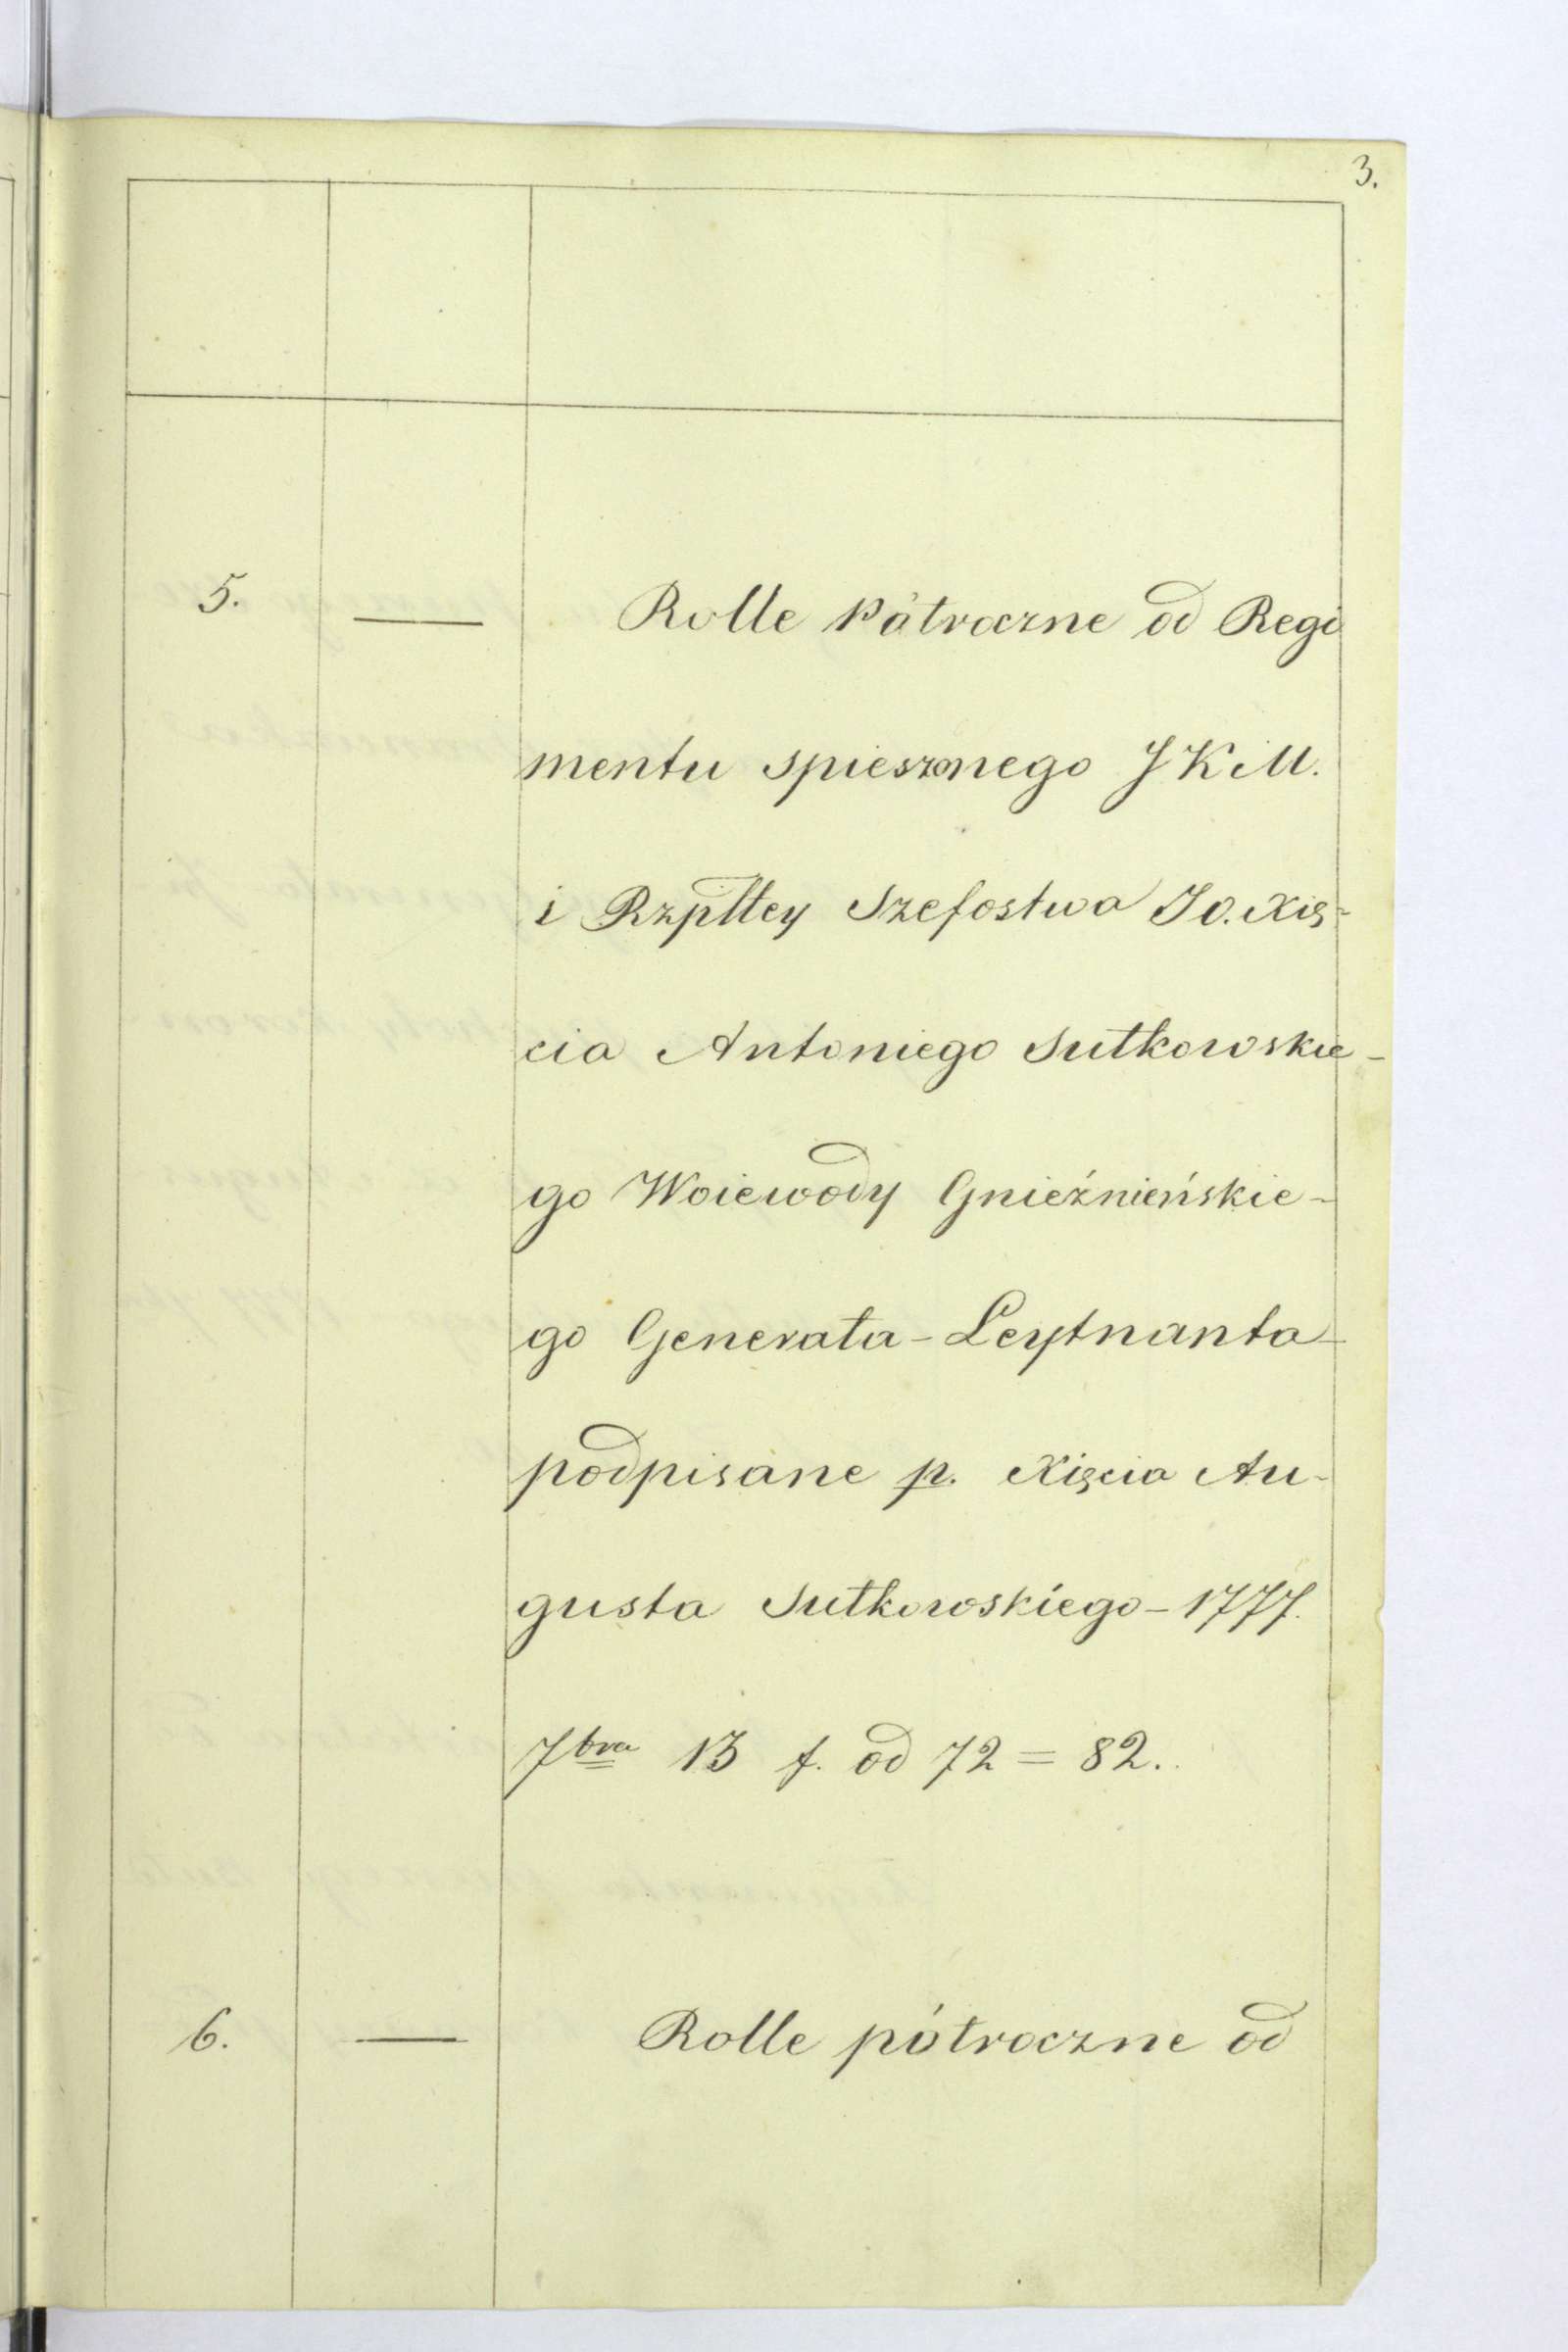 3.
5. — Rolle Półroczne od Regi
mentu spieszonego JKM.
i Rzplttey Szefostwa JO. Xię=
cia Antoniego Sułkowskie-
go Woiewody Gnieźnieńskie-
go Generała-Leytnanta-
podpisane p. Xięcia Au-
gusta Sułkowskiego-1777.
7bra 13 f. od 72 = 82.
6. — Rolle półroczne od